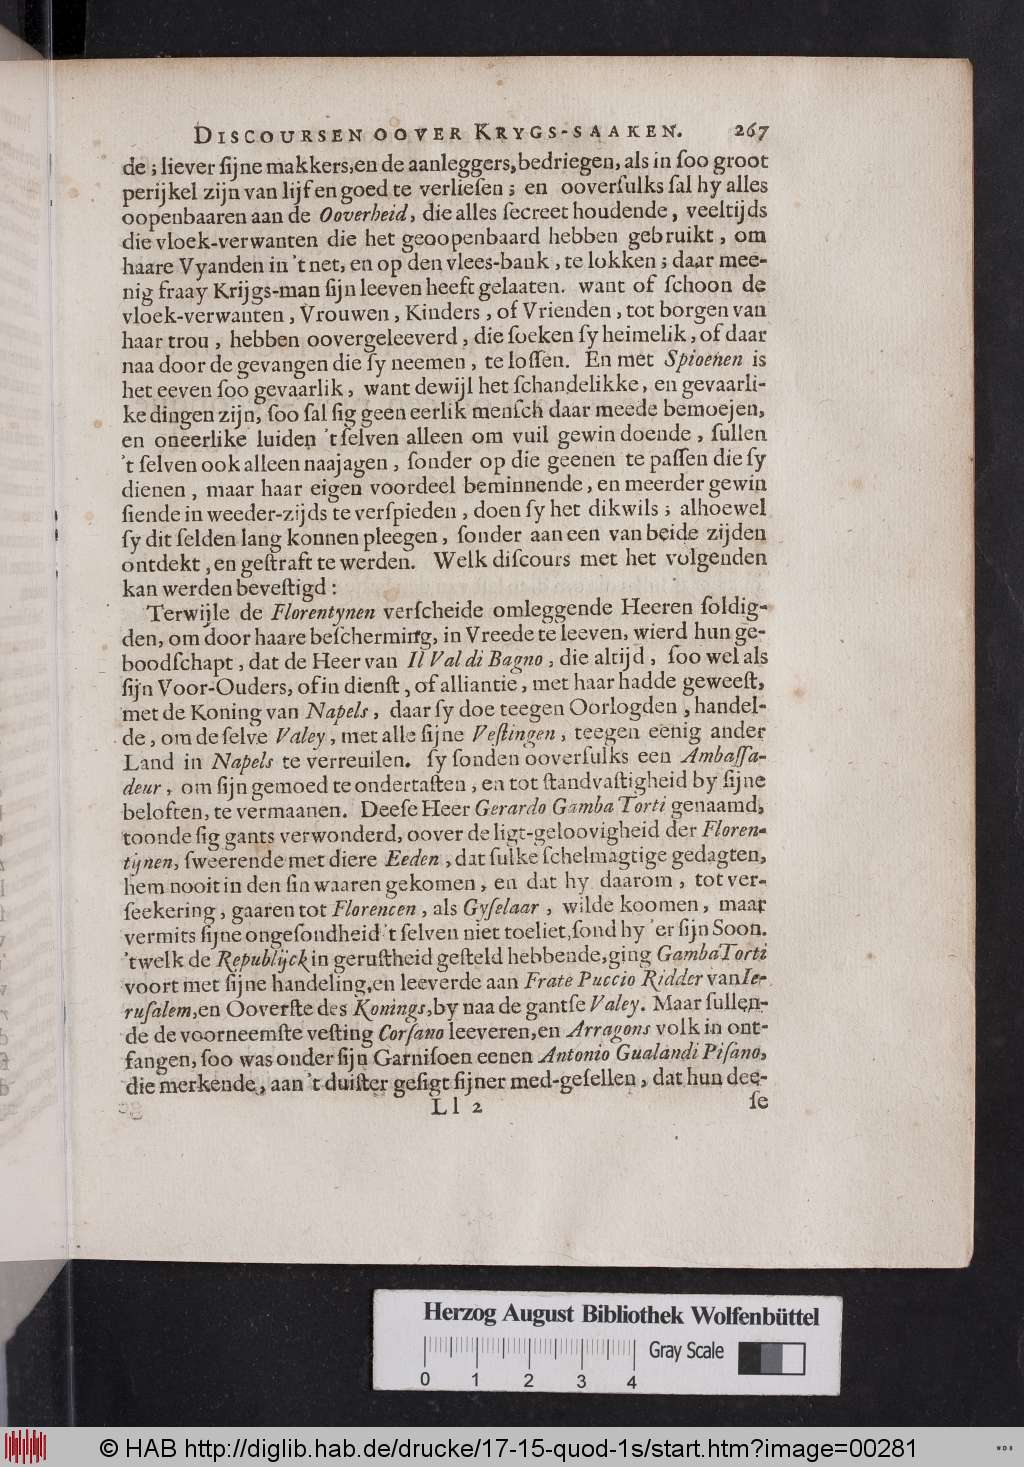 DISCOURSEN OOVER KRYGS-SAAKEN. 267
de; liever ſijne makkers, en de aanleggers, bedriegen, als in ſoo groot
perijkel zijn van lijf en goed te verlieſen; en ooverſulks ſal hy alles
oopenbaaren aan de Ooverheid, die alles ſecreet houdende, veeltijds
die vloek-verwanten die het geoopenbaard hebben gebruikt, om
haare Vyanden in 't net, en op den vlees-bank, te lokken; daar mee-
nig fraay Krijgs-man ſijn leeven heeft gelaaten. want of ſchoon de
vloek-verwanten, Vrouwen, Kinders, of Vrienden, tot borgen van
haar trou, hebben oovergeleeverd, die ſoeken ſy heimelik, of daar
naa door de gevangen die ſy neemen, te loſſen. En met Spioenen is
het eeven ſoo gevaarlik, want dewijl het ſchandelikke, en gevaarli-
ke dingen zijn, ſoo ſal ſig geen eerlik menſch daar meede bemoejen,
en oneerlike luiden 't ſelven alleen om vuil gewin doende, ſullen
't ſelven ook alleen naajagen, ſonder op die geenen te paſſen die ſy
dienen, maar haar eigen voordeel beminnende, en meerder gewin
ſiende in weeder-zijds te verſpieden, doen ſy het dikwils; alhoewel
ſy dit ſelden lang konnen pleegen, ſonder aan een van beide zijden
ontdekt, en geſtraft te werden. Welk diſcours met het volgenden
kan werden beveſtigd:
Terwijle de Florentynen verſcheide omleggende Heeren ſoldig-
den, om door haare beſcherming, in Vreede te leeven, wierd hun ge-
boodſchapt, dat de Heer van Il Val di Bagno, die altijd, ſoo wel als
ſijn Voor-Ouders, of in dienſt, of alliantie, met haar hadde geweeſt,
met de Koning van Napels, daar ſy doe teegen Oorlogden, handel-
de, om de ſelve Valey, met alle ſijne Veſtingen, teegen eenig ander
Land in Napels te verreuilen. ſy ſonden ooverſulks een Ambaſſa-
deur, om ſijn gemoed te ondertaſten, en tot ſtandvaſtigheid by ſijne
beloften, te vermaanen. Deeſe Heer Gerardo Gamba Torti genaamd,
toonde ſig gants verwonderd, oover de ligt-geloovigheid der Floren-
tijnen, ſweerende met diere Eeden, dat ſulke ſchelmagtige gedagten,
hem nooit in den ſin waaren gekomen, en dat hy daarom, tot ver-
ſeekering, gaaren tot Florencen, als Gyſelaar, wilde koomen, maar
vermits ſijne ongeſondheid 't ſelven niet toeliet, ſond hy 'er ſijn Soon.
'twelk de Republijck in geruſtheid geſteld hebbende, ging Gamba Torti
voort met ſijne handeling, en leeverde aan Frate Puccio Ridder van Ie-
ruſalem, en Ooverſte des Konings, by naa de gantſe Valey. Maar ſullen-
de de voorneemſte veſting Corſano leeveren, en Arragons volk in ont-
fangen, ſoo was onder ſijn Garniſoen eenen Antonio Gualandi Piſano,
die merkende, aan 't duiſter geſigt ſijner med-geſellen, dat hun dee-
Ll 2 ſe
Herzog August Bibliothek Wolfenbüttel
Gray Scale
0 1 2 3 4
© HAB http://diglib.hab.de/drucke/17-15-quod-1s/start.htm?image=00281